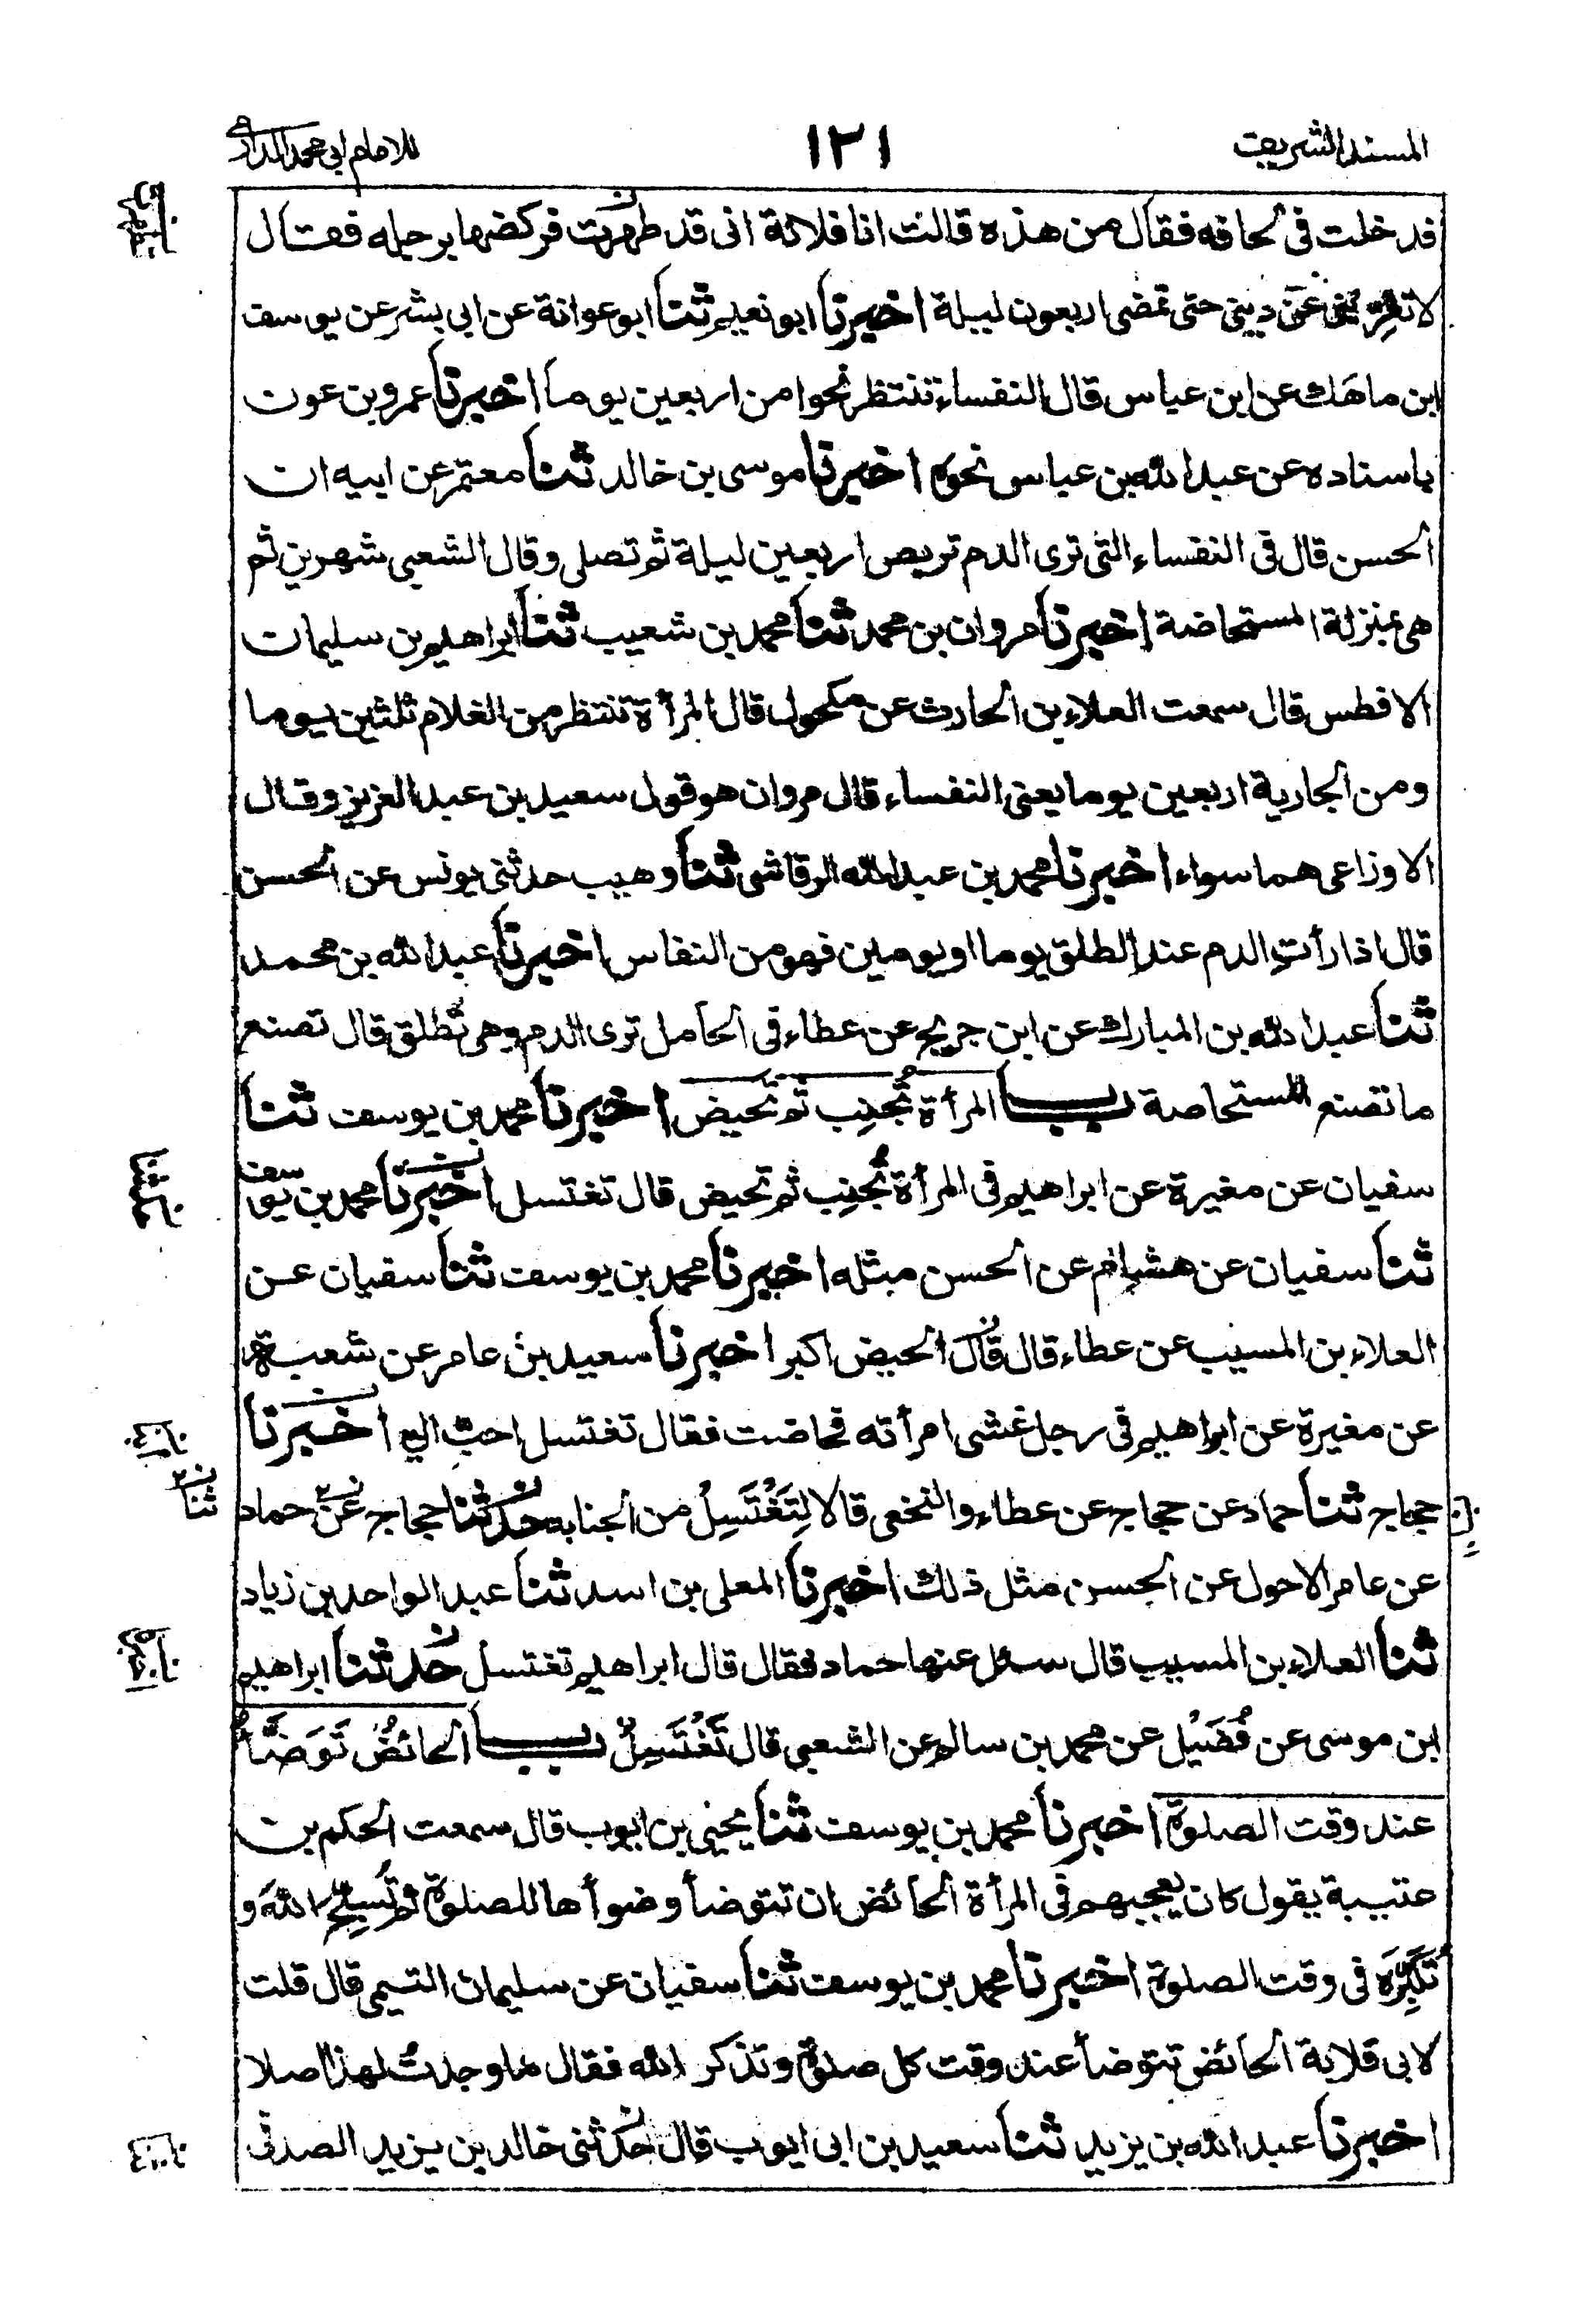 المسند الشريف
١٢١
للامام ابي محمد الدارمي
فدخلت في لحافه فقال من هذه قالت انا فلانة اني قد طهرت فركضها برجله فقال
لا تغريني عن ديني حتى تمضي اربعون ليلة اخبرنا ابو نعيم ثنا ابو عوانة عن ابي بشر عن يوسف
ابن ماهك عن ابن عباس قال النفساء تنتظر نحوا من اربعين يوما اخبرنا عمرو بن عون
باسناده عن عبد الله بن عباس نحوه اخبرنا موسى بن خالد ثنا معتمر عن ابيه ان
الحسن قال في النفساء التي ترى الدم تربص اربعين ليلة ثم تصلي وقال الشعبي شهرين ثم
هي بمنزلة المستحاضة اخبرنا مروان بن محمد ثنا محمد بن شعيب ثنا ابراهيم بن سليمان
الافطس قال سمعت العلاء بن الحارث عن مكحول قال المرأة تنتظر من الغلام ثلثين يوما
ومن الجارية اربعين يوما يعني النفساء قال مروان هو قول سعيد بن عبد العزيز وقال
الاوزاعي هما سواء اخبرنا محمد بن عبد الله الرقاشي ثنا وهيب حدثني يونس عن الحسن
قال اذا رأت الدم عند الطلق يوما او يومين فهو من النفاس اخبرنا عبد الله بن محمد
ثنا عبد الله بن المبارك عن ابن جريج عن عطاء في الحامل ترى الدم وهي تُطلق قال تصنع
ما تصنع المستحاضة باب المرأة تُجنِب ثم تحيض اخبرنا محمد بن يوسف ثنا
سفيان عن مغيرة عن ابراهيم في المرأة تُجنِب ثم تحيض قال تغتسل اخبرنا محمد بن يوسف
ثنا سفيان عن هشام عن الحسن مثله اخبرنا محمد بن يوسف ثنا سفيان عن
العلاء بن المسيب عن عطاء قال قال الحيض اكبر اخبرنا سعيد بن عامر عن شعبة
عن مغيرة عن ابراهيم في رجل غشي امرأته فحاضت فقال تغتسل احب الي اخبرنا
حجاج ثنا حماد عن حجاج عن عطاء والنخعي قالا لِتَغْتَسِلْ من الجنابة حدثنا حجاج عن حماد
ثنا
عن عامر الاحول عن الحسن مثل ذلك اخبرنا المعلى بن اسد ثنا عبد الواحد بن زياد
ثنا العلاء بن المسيب قال سئل عنها حماد فقال قال ابراهيم تغتسل حدثنا ابراهيم
ابن موسى عن فُضَيْل عن محمد بن سالم عن الشعبي قال تَغْتَسِلُ باب الحائضُ تَوَضَّأُ
عند وقت الصلوة اخبرنا محمد بن يوسف ثنا يحيى بن ايوب قال سمعت الحكم بن
عتيبة يقول كان يعجبهم في المرأة الحائض ان تتوضأ وضوأها للصلوة ثم تُسبّح الله و
تُكَبِّرَه في وقت الصلوة اخبرنا محمد بن يوسف ثنا سفيان عن سليمان التيمي قال قلت
لابي قلابة الحائض تتوضأ عند وقت كل صلوة وتذكر الله فقال ما وجدتُ لهذا اصلا
اخبرنا عبد الله بن يزيد ثنا سعيد بن ابي ايوب قال حدثني خالد بن يزيد الصدفي